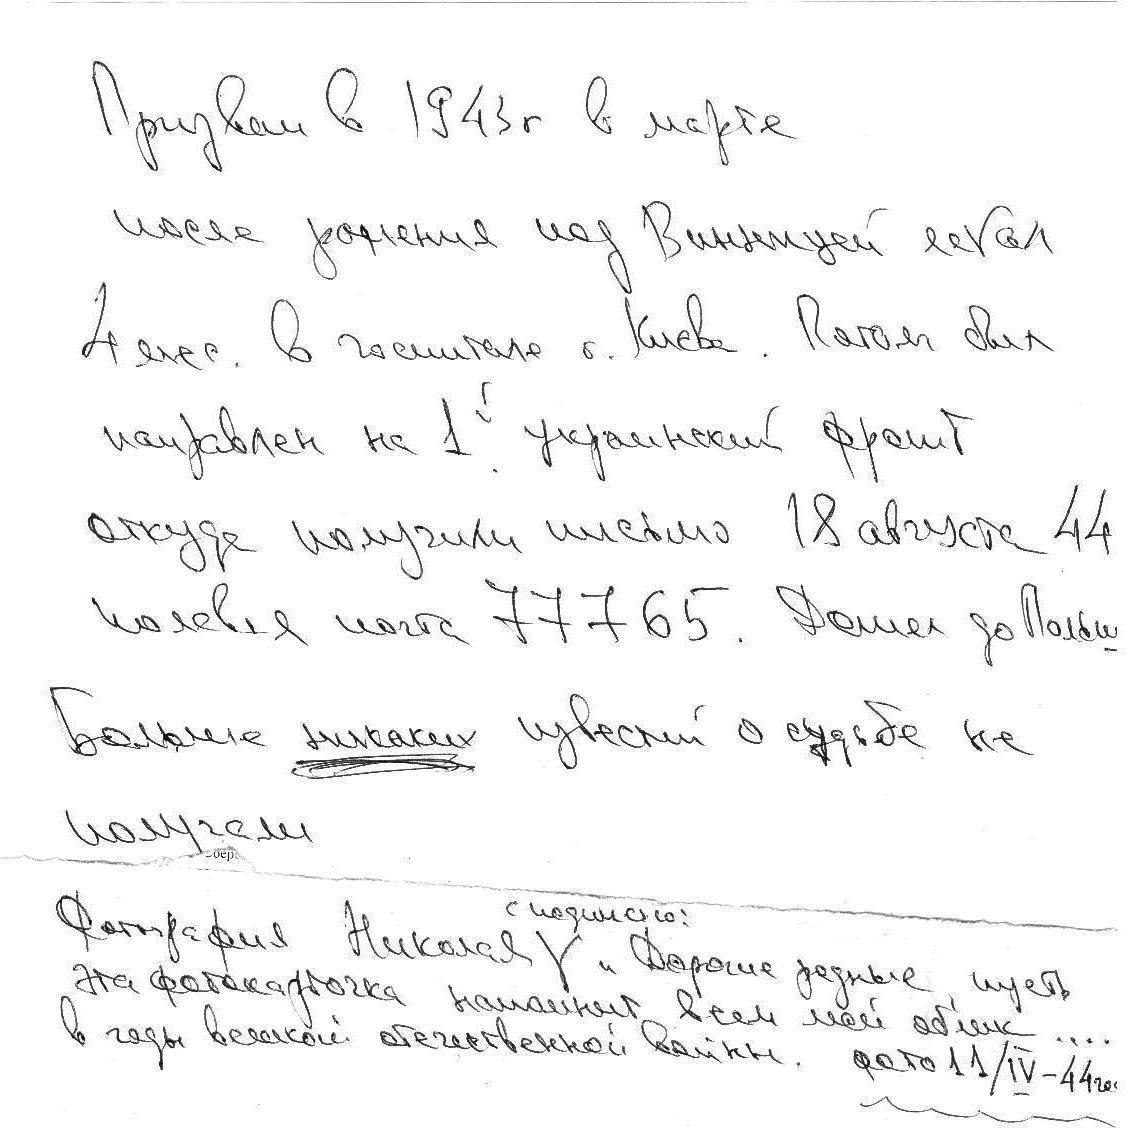 Призван в 1943г в марте
после ранения под Винницей лежал
4 мес. в госпитале г. Киева. Потом был
направлен на 1й украинский фронт
откуда получили письмо 18 августа 44
полевая почта 77765. Дошел до Польш
Больше никаких известий о судьбе не
получали
Фотография Николая с подписью: "Дорогие родные, пусть
эта фотокарточка напомнит всем мой облик ....
в годы великой отечественной войны. фото 11/IV-44го